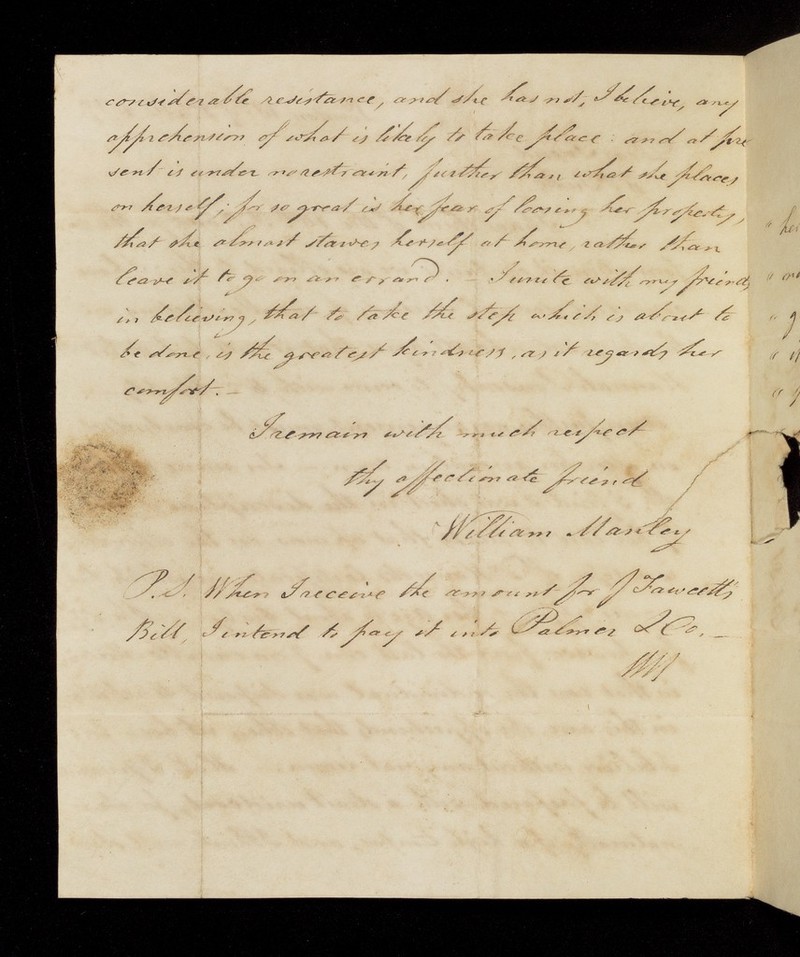 considerable resistance, and she has not, I believe, any
apprehension of what is likely to take place: and at pre
sent is under no restraint, further than what she places
on herself; for so great is her fear of loosing her property,
that she almost starves herself at home, rather than
leave it to go on an errand. - I unite with my friends
in believing, that to take the step which is about to
be done, is the greatest kindness, as it regards her
comfort. -
I remain with much respect
thy affectionate friend
William Manley
P.S. When I receive the amount for J Fawcett's
Bill, I intend to pay it into Palmer & Co. -
WM